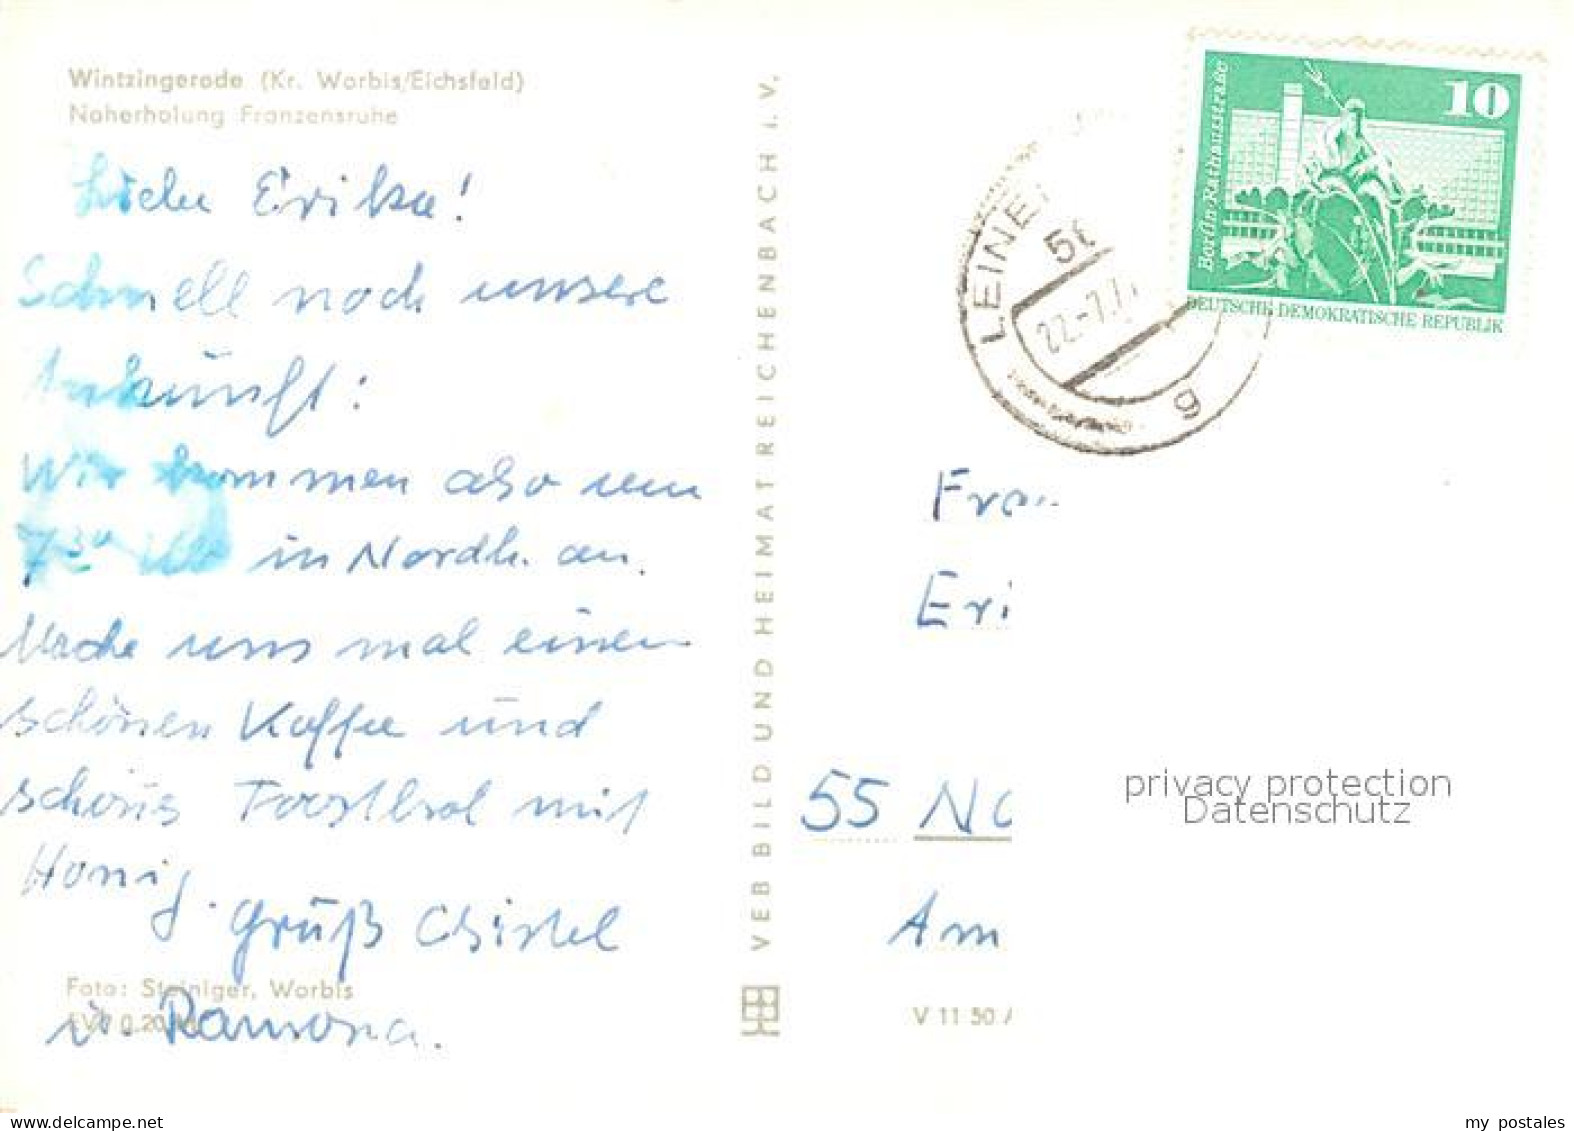 Wintzingerode (Kr. Worbis/Eichsfeld)
Naherholung Franzensruhe
Liebe Erika!
Schnell noch unsere
Ankunft:
Wir kommen also um
7³⁰ Uhr in Nordh. an.
Mache uns mal einen
schönen Kaffee und
schönes Toastbrot mit
Honig.
Gruß Christel
u. Ramona.
Foto: Steiniger, Worbis
EVP 0.20
VEB BILD UND HEIMAT REICHENBACH i. V.
10
Berlin-Rathausstraße
DEUTSCHE DEMOKRATISCHE REPUBLIK
LEINE
22.-7.7
g
Frau
Eri
55 No
Am
V 11 50 A
privacy protection
Datenschutz
akpool.de
my postales